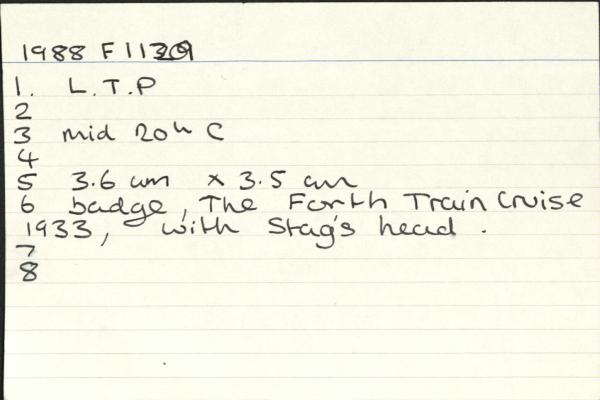 1988 F 1129
1. L.T.P
2
3 mid 20th C
4
5 3.6 cm x 3.5 cm
6 badge, The Forth Train Cruise
1933, with Stag's head.
7
8